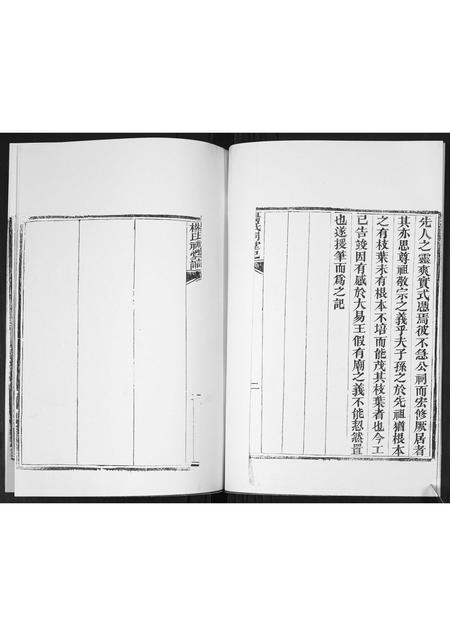 先人之靈爽實式憑焉彼不急公祠而宏修厥居者
其亦思尊祖敬宗之義乎夫子孫之於先祖猶根本
之有枝葉未有根本不培而能茂其枝葉者也今工
已告竣因有感於大易王假有廟之義不能恝然置
也遂援筆而為之記
祠堂記
二